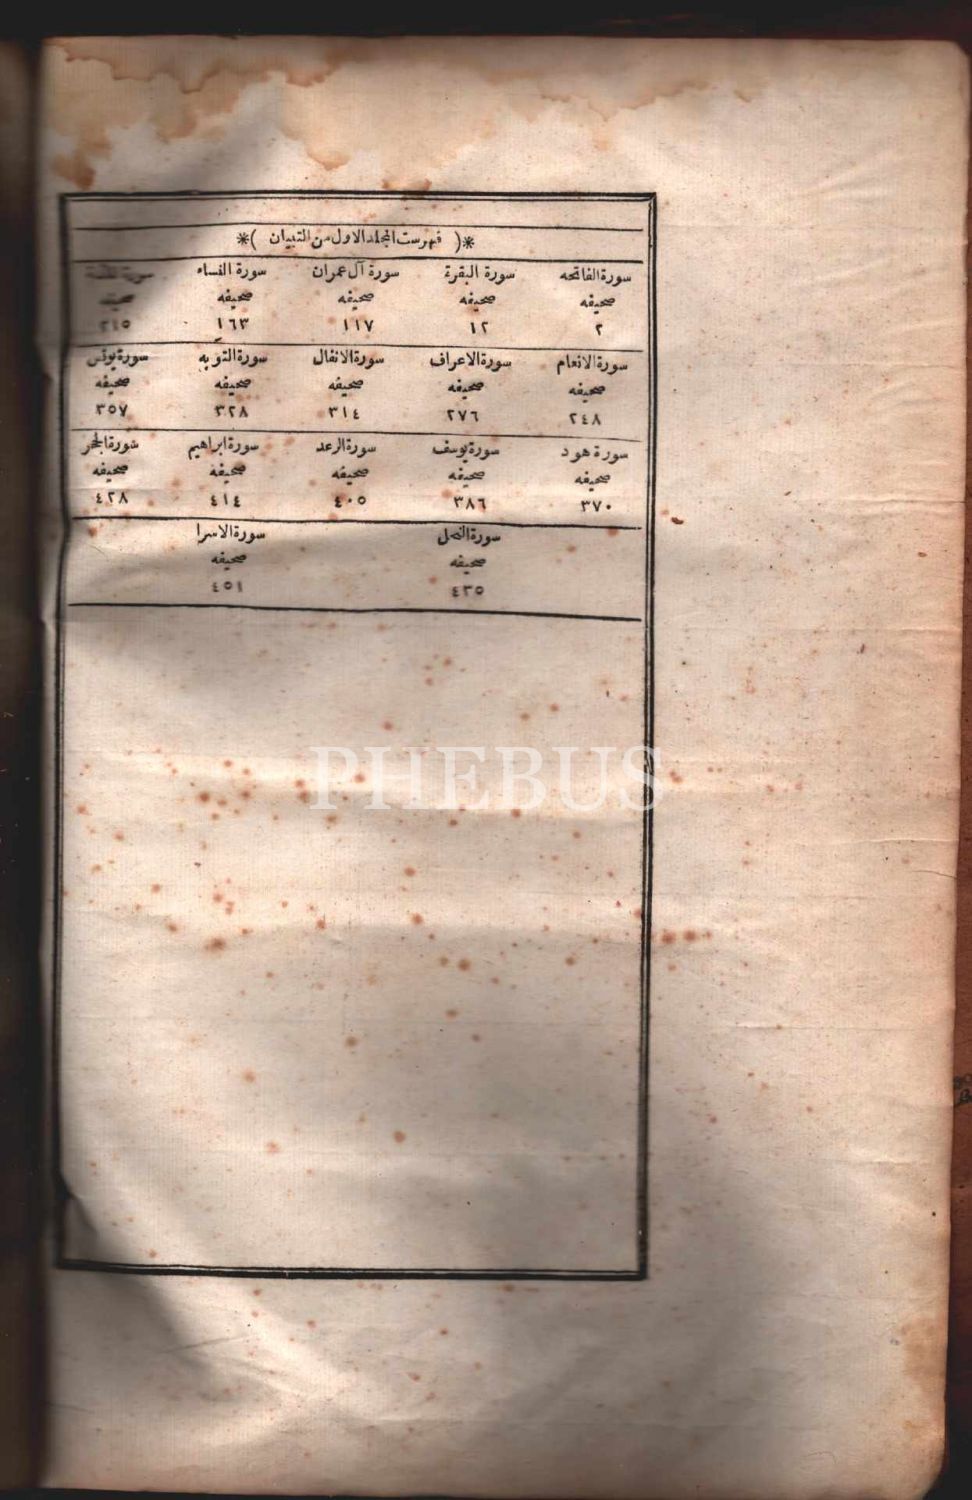 *( فهرست المجلد الاول من التبيان )*
سورة الفاتحه سورة البقرة سورة آل عمران سورة النساء سورة
صحيفه صحيفه صحيفه صحيفه صحيفه
٢ ١٢ ١١٧ ١٦٣ ٢١٥
سورة الانعام سورة الاعراف سورة الانفال سورة التوبه سورة يونس
صحيفه صحيفه صحيفه صحيفه صحيفه
٢٤٨ ٢٧٦ ٣١٤ ٣٢٨ ٣٥٧
سورة هود سورة يوسف سورة الرعد سورة ابراهيم سورة الحجر
صحيفه صحيفه صحيفه صحيفه صحيفه
٣٧٠ ٣٨٦ ٤٠٥ ٤١٤ ٤٢٨
سورة النحل سورة الاسرا
صحيفه صحيفه
٤٣٥ ٤٥١
PHEBUS